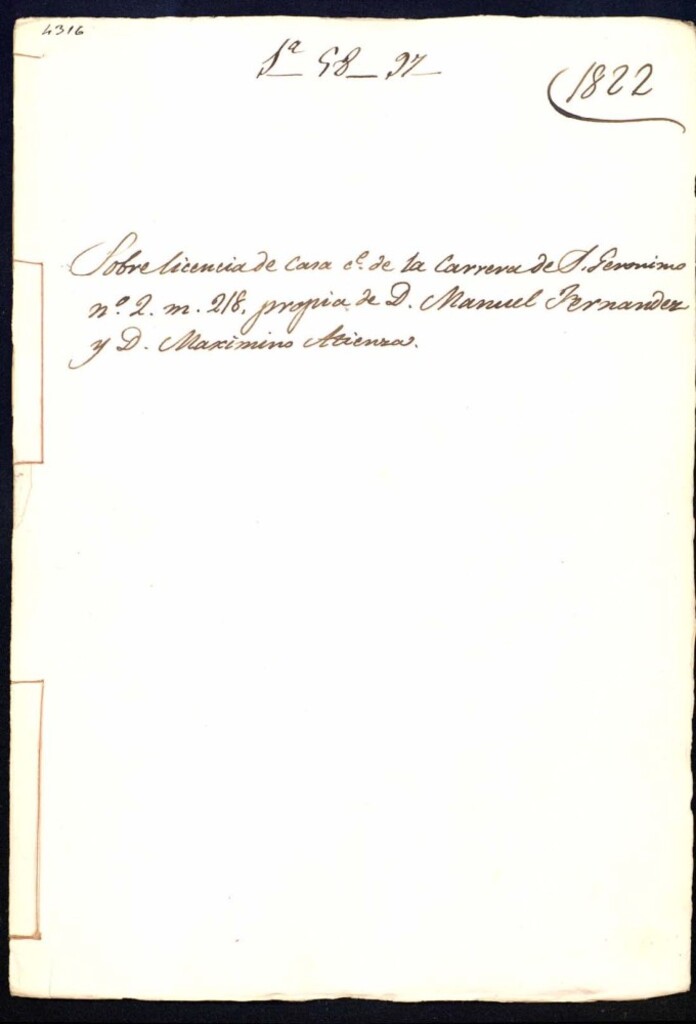 4316
1ª 58 97
1822
Sobre licencia de Casa c.e de la Carrera de S. Geronimo
n.º 2. m. 218, propia de D. Manuel Fernandez
y D. Maximino Atienza.